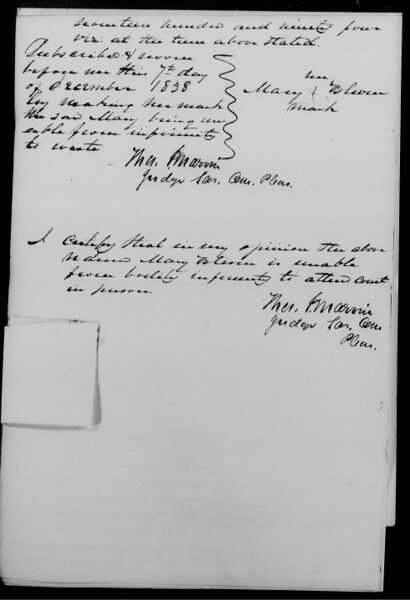 seventeen hundred and ninety four
viz. at the time above stated.
Subscribed & sworn
before me this 7th day
of December 1838
by making her mark
the said Mary being un
able from infirmity
to write
her
Mary + Blevin
mark
Thos. J. Marvin
Judge Sar. Com. Pleas.
I certify that in my opinion the above
named Mary Blevin is unable
from bodily infirmity to attend court
in person
Thos. J. Marvin
Judge Sar. Com
Pleas.